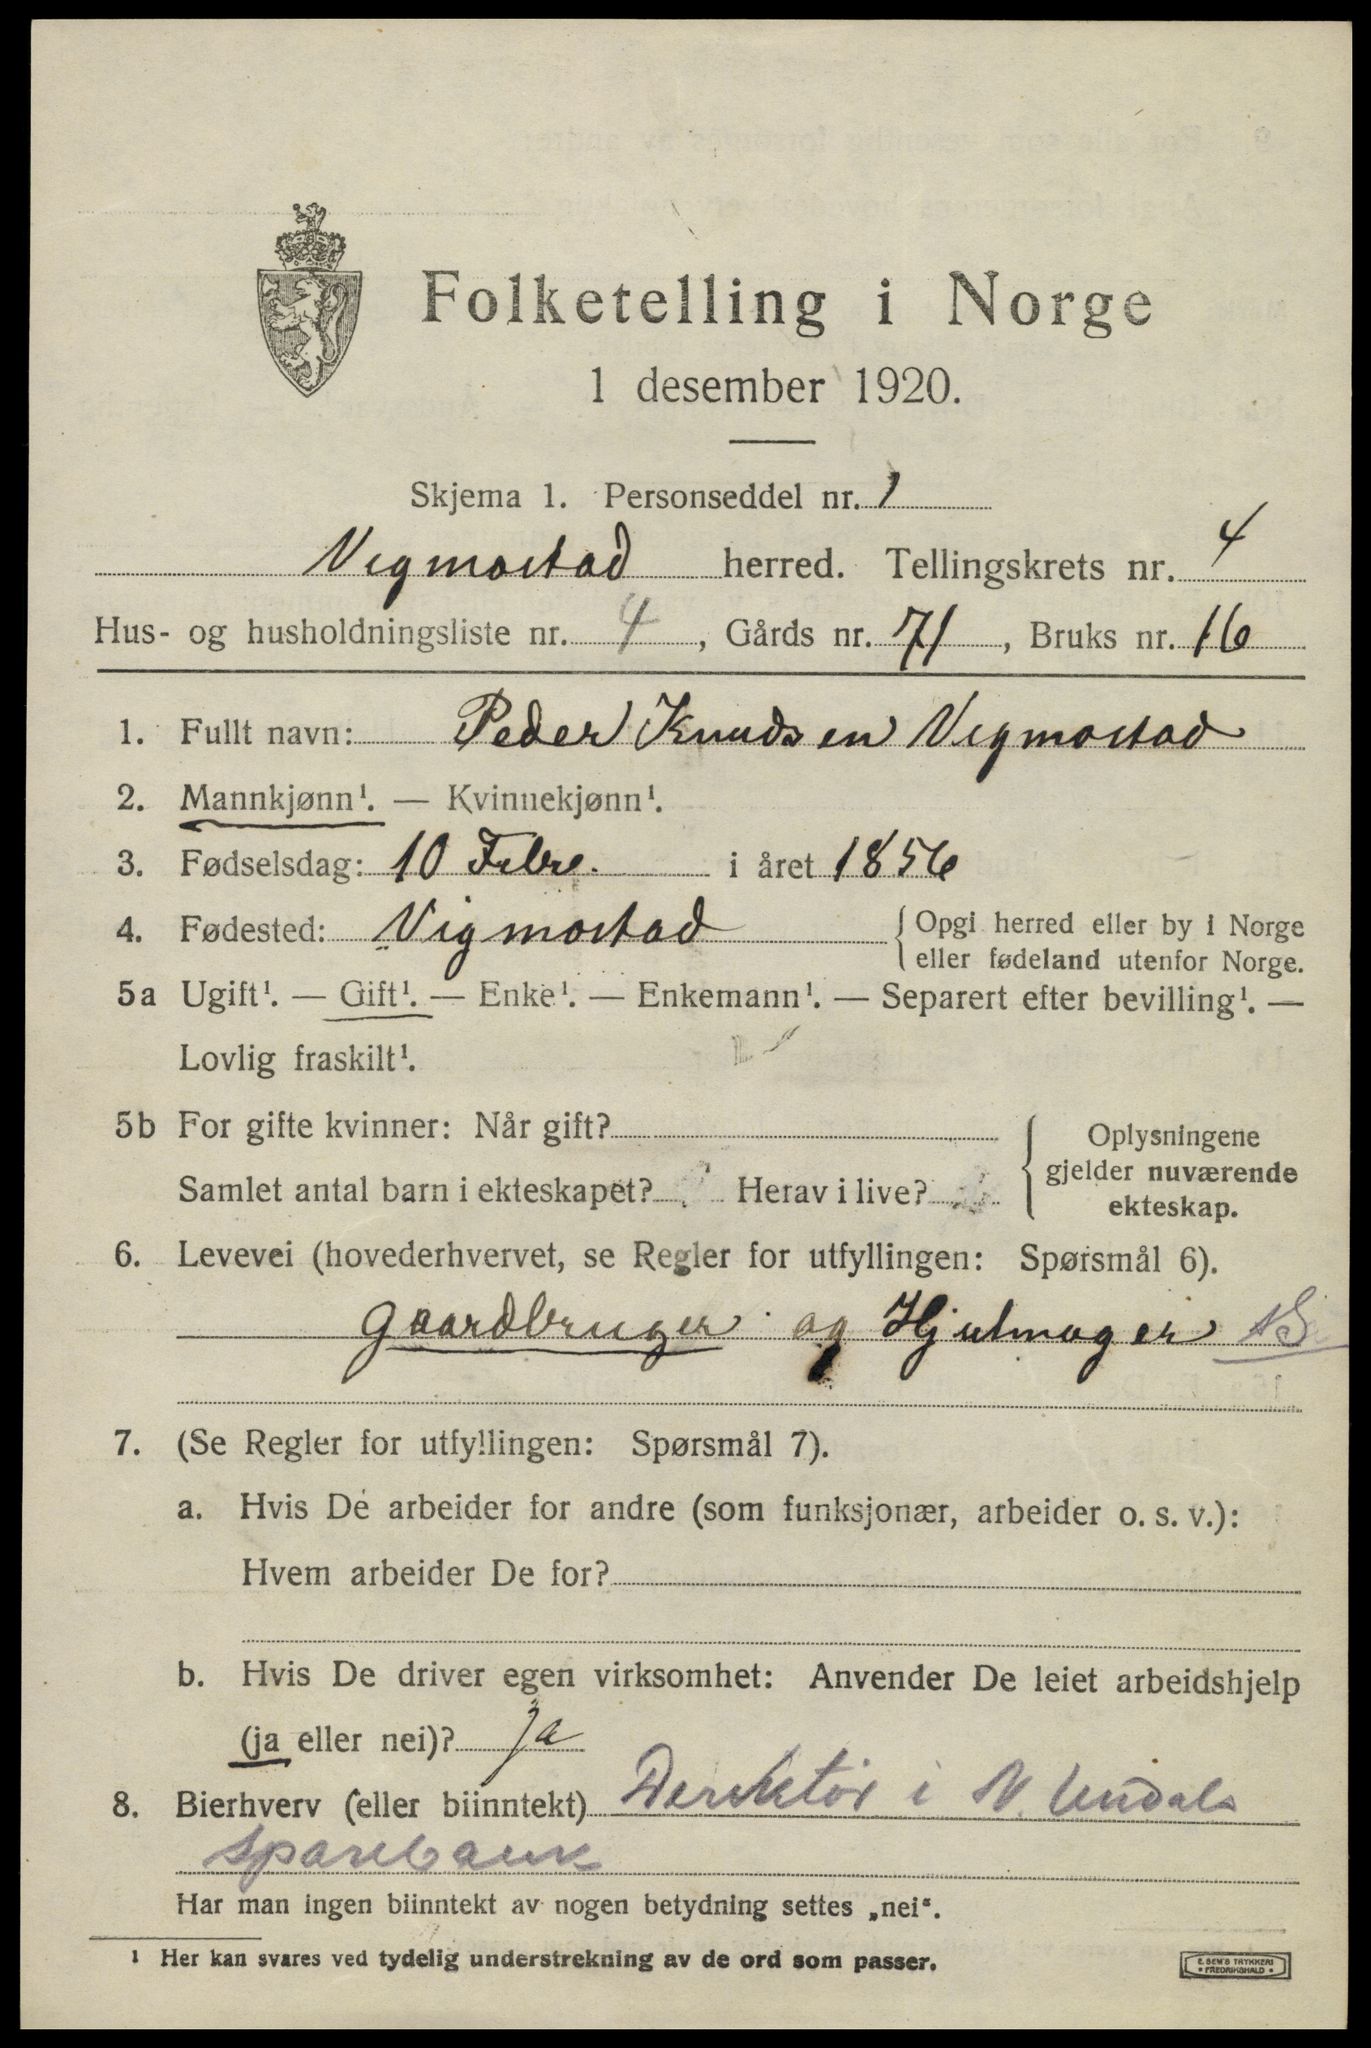 Folketelling i Norge
1 desember 1920.
Skjema 1. Personseddel nr. 1
Vigmostad herred. Tellingskrets nr. 4
Hus- og husholdningsliste nr. 4, Gårds nr. 71, Bruks nr. 16
1. Fullt navn: Peder Knudsen Vigmostad
2. Mannkjønn¹. — Kvinnekjønn¹.
3. Fødselsdag: 10 Febr. i året 1856
4. Fødested: Vigmostad { Opgi herred eller by i Norge
eller fødeland utenfor Norge.
5a Ugift¹. — Gift¹. — Enke¹. — Enkemann¹. — Separert efter bevilling¹. —
Lovlig fraskilt¹.
5b For gifte kvinner: Når gift?
Samlet antal barn i ekteskapet? Herav i live?
{ Oplysningene
gjelder nuværende
ekteskap.
6. Levevei (hovederhvervet, se Regler for utfyllingen: Spørsmål 6).
Gaardbruger og Hjulmager
7. (Se Regler for utfyllingen: Spørsmål 7).
a. Hvis De arbeider for andre (som funksjonær, arbeider o. s. v.):
Hvem arbeider De for?
b. Hvis De driver egen virksomhet: Anvender De leiet arbeidshjelp
(ja eller nei)? Ja
8. Bierhverv (eller biinntekt) Direktør i N. Undals
Sparebank
Har man ingen biinntekt av nogen betydning settes „nei“.
¹ Her kan svares ved tydelig understrekning av de ord som passer.
E. SEM'S TRYKKERI
• FREDRIKSHALD •